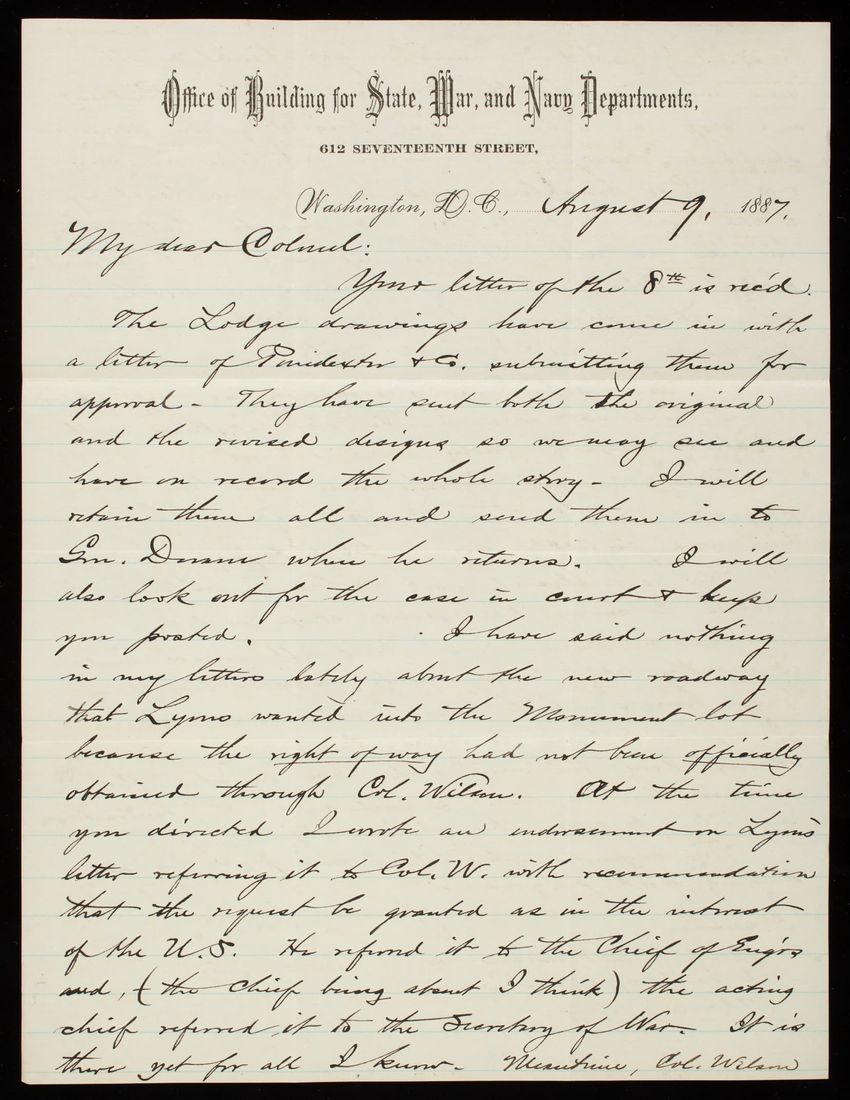 Office of Building for State, War, and Navy Departments,
612 SEVENTEENTH STREET,
Washington, D.C., August 9, 1887.
My dear Colonel:
Your letter of the 8th is rec'd.
The Lodge drawings have come in with
a letter of Poindexter & Co. submitting them for
approval - They have sent both the original
and the revised designs so we may see and
have on record the whole story - I will
retain them all and send them in to
Gen. Duane when he returns. I will
also look out for the case in court & keep
you posted. I have said nothing
in my letters lately about the new roadway
that Lyons wanted into the Monument lot
because the right of way had not been officially
obtained through Col. Wilson. At the time
you directed I wrote an endorsement on Lyons
letter referring it to Col. W. with recommendation
that the request be granted as in the interest
of the U.S. He referred it to the Chief of Eng'rs
and, (the chief being absent I think) the acting
chief referred it to the Secretary of War - It is
there yet for all I know - Meantime, Col. Wilson